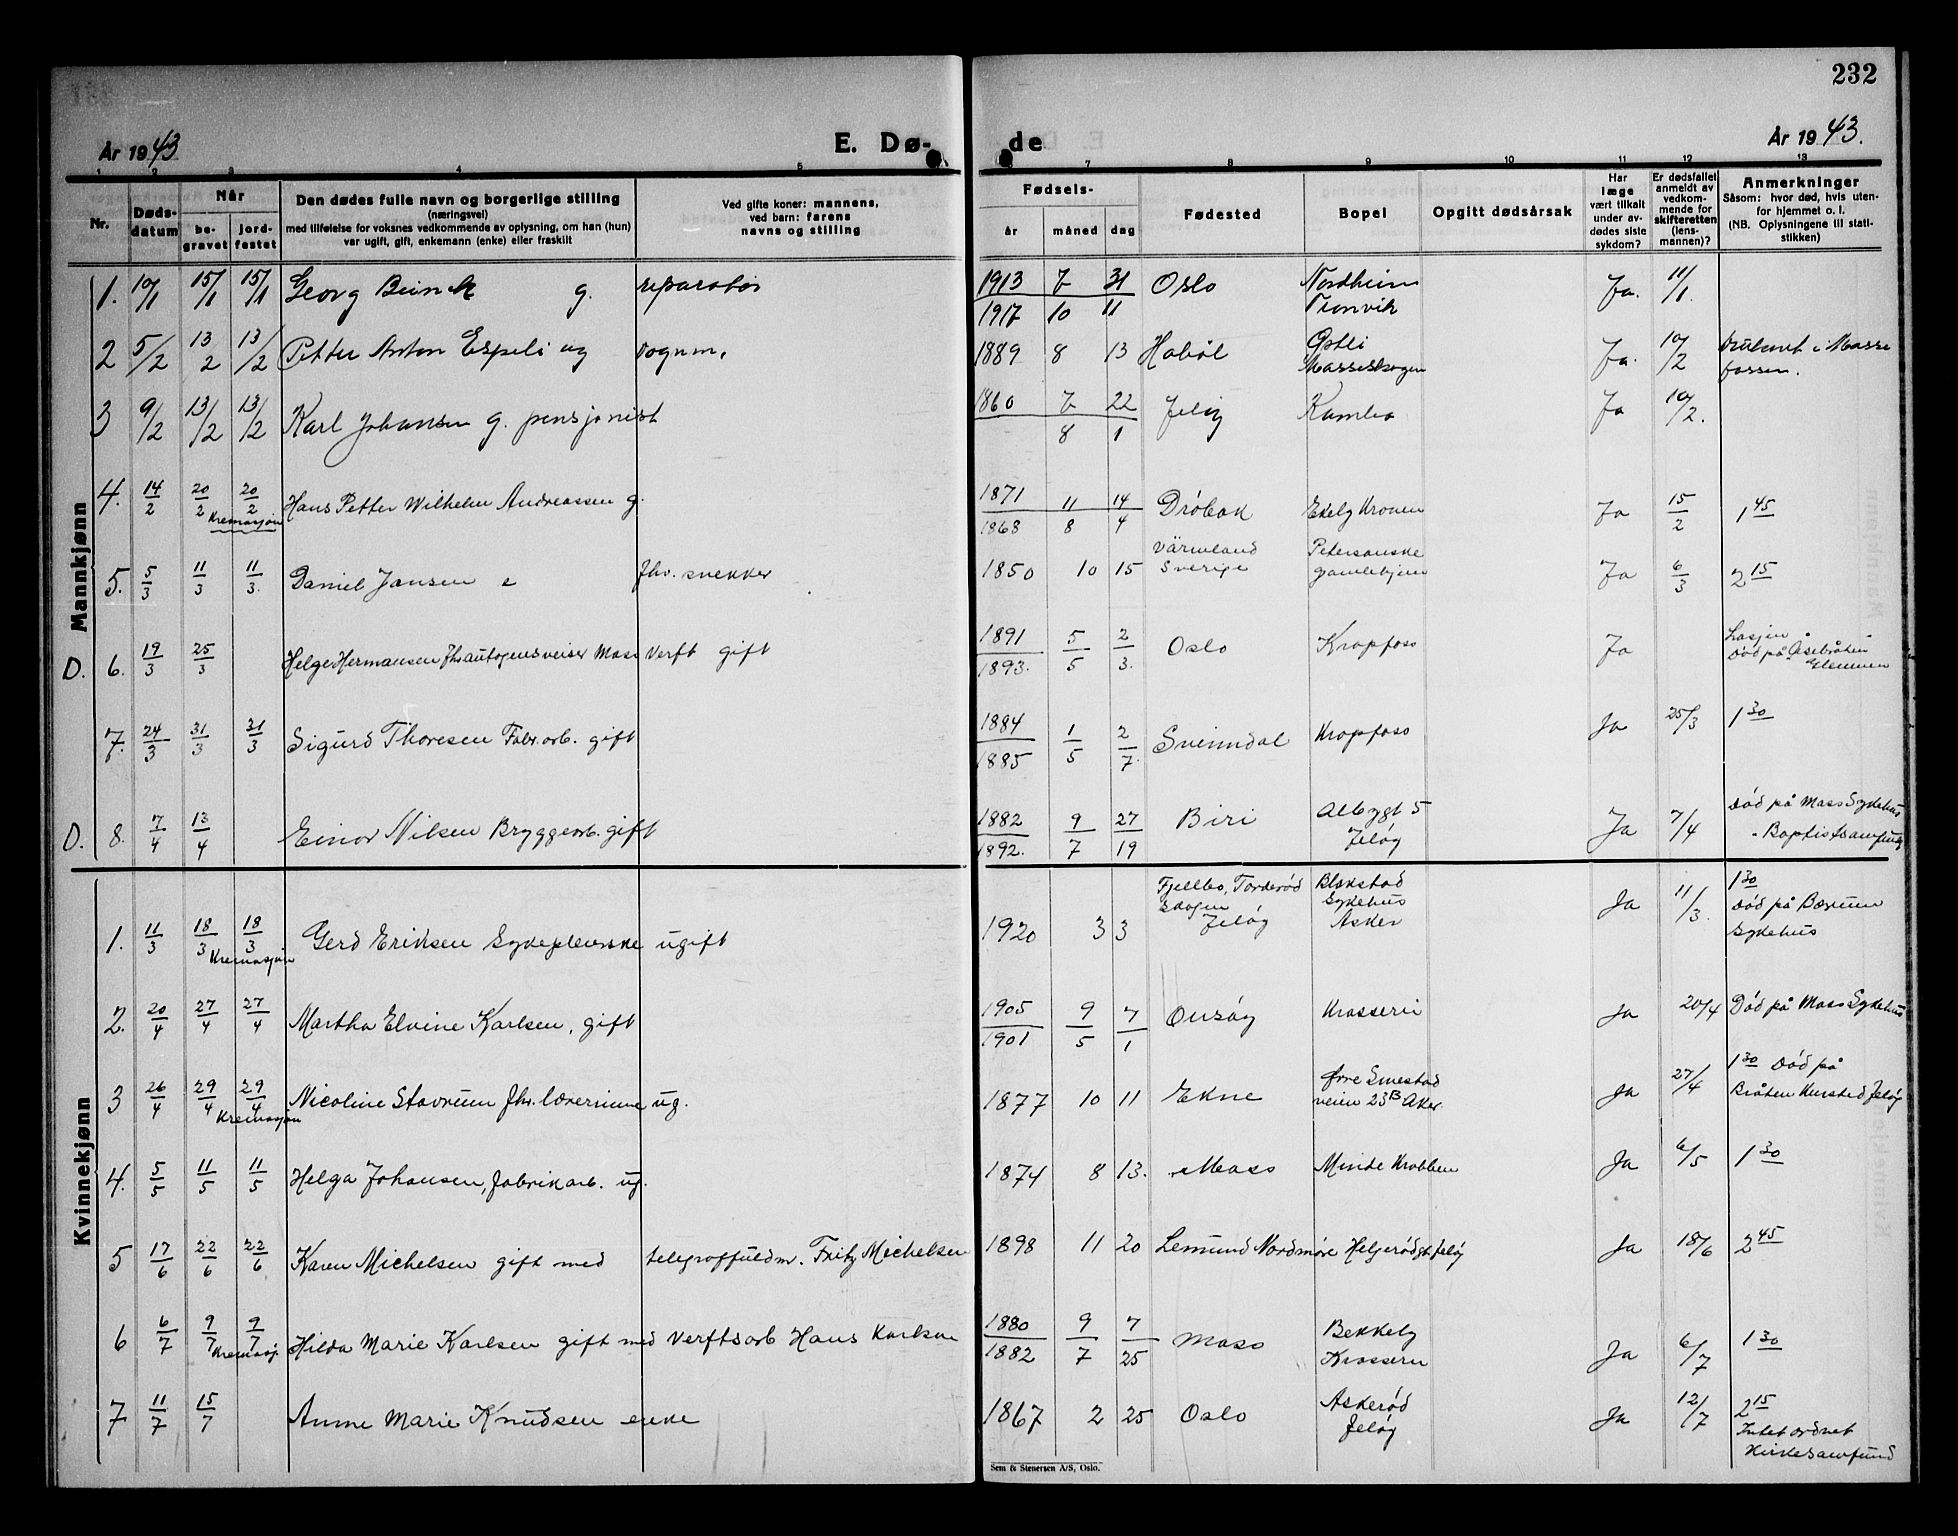 232
År 1943
E. Dø-
de
År 1943.
1 2 3 4 5 7 8 9 10 11 12 13
Nr.
Døds-
datum
Når
be-
gravet
jord-
festet
Den dødes fulle navn og borgerlige stilling
(næringsvei)
med tilføielse for voksnes vedkommende av oplysning, om han (hun)
var ugift, gift, enkemann (enke) eller fraskilt
Ved gifte koner: mannens,
ved barn: farens
navns og stilling
Fødsels-
år måned dag
Fødested
Bopel
Opgitt dødsårsak
Har
læge
vært tilkalt
under av-
dødes siste
sykdom?
Er dødsfallet
anmeldt av
vedkom-
mende for
skifteretten
(lens-
mannen)?
Anmerkninger
Såsom: hvor død, hvis uten-
for hjemmet o. l.
(NB. Oplysningene til stati-
stikken)
Mankjønn
1. 10/1 15/1 15/1 Georg g. reparatør 1913 7 31 Oslo Nordheim Ja. 11/1.
1917 10 11 Tronvik
2 5/2 13/2 13/2 Petter Anton Espeli ug vognm. 1889 8 13 Hobøl Østli Ja. 10/2 i Mosse
Mosseskogen fossen.
3 9/2 13/2 13/2 Karl Johansen g. pensjonist 1860 7 22 Jeløy Kambo Ja 10/2.
8 1
4. 14/2 20/2 20/2 Hans Petter Wilhelm Andreassen g. 1871 11 14 Drøbak Ekely Kronen Ja 15/2 1 45
Kremasjon 1868 8 4
Värmland Petersonske
5. 5/3 11/3 11/3. Daniel Jansen e fhv. snekker 1850 10 15 Sverige gamlehjem Ja 6/3 2 15
D. 6. 19/3 25/3 Helge Hermansen fhv autogensveiser Moss Verft gift 1891 5 2 Oslo Kropfoss Ja
1893. 5 3. Død på Åsebråten
Glemmen
7. 24/3 31/3 31/3 Sigurd Thoresen Fabr.arb. gift 1884 1 2 Svinndal Kropfoss Ja 25/3 1 30
1885 5 7.
D. 8. 7/4 13/4 Einar Nilsen Bryggearb. gift 1882 9 27 Biri Albygt 5 Ja 7/4 Død på Moss Sykehus
1892. 7 19 Jeløy
Kvinnekjønn
1. 11/3 18/3 18/3 Gerd Eriksen Sykepleierske ugift 1920 3 3 Fjellbo, Torderød Blakstad Ja 11/3. 1 30
Kremasjon skogen Sykehus Død på Bærum
Jeløy Asker Sykehus
2. 20/4 27/4 27/4 Martha Elvine Karlsen, gift 1905 9 7 Onsøy Krosseri Ja 20/4 Død på Moss Sykehus
1901 5 1
3 26/4 29/4 29/4 Nicoline Stavrum fhv. lærerinne ug. 1877 10 11 Ekne Øvre Smestad Ja 27/4 1 30 Død på
Kremasjon veien 23B Aker. Bråten Kursted Jeløy
4. 5/5 11/5 11/5 Helga Johansen, fabrikarb. ug. 1874 8 13. Moss Minde Krabben Ja 6/5 1 30
5 17/6 22/6 22/6 Karen Michelsen gift med telegraffuldm. Fritz Michelsen 1898 11 20 Nordmøre Helgerødgt Jeløy Ja 18/6 2 45
6 6/7 9/7 9/7 Hilda Marie Karlsen gift med Verftsarb Hans Karlsen 1880 9 7 Moss Bekkely Ja 6/7 1 30
Kremasj. 1882 7 25 Krosseri
7 11/7 15/7 Anne Marie Knudsen enke 1867 2 25 Oslo Askerød Ja 12/7 2 15
Jeløy Intet ordnet
Kirkesamfund
Sem & Stenersen A/S, Oslo.